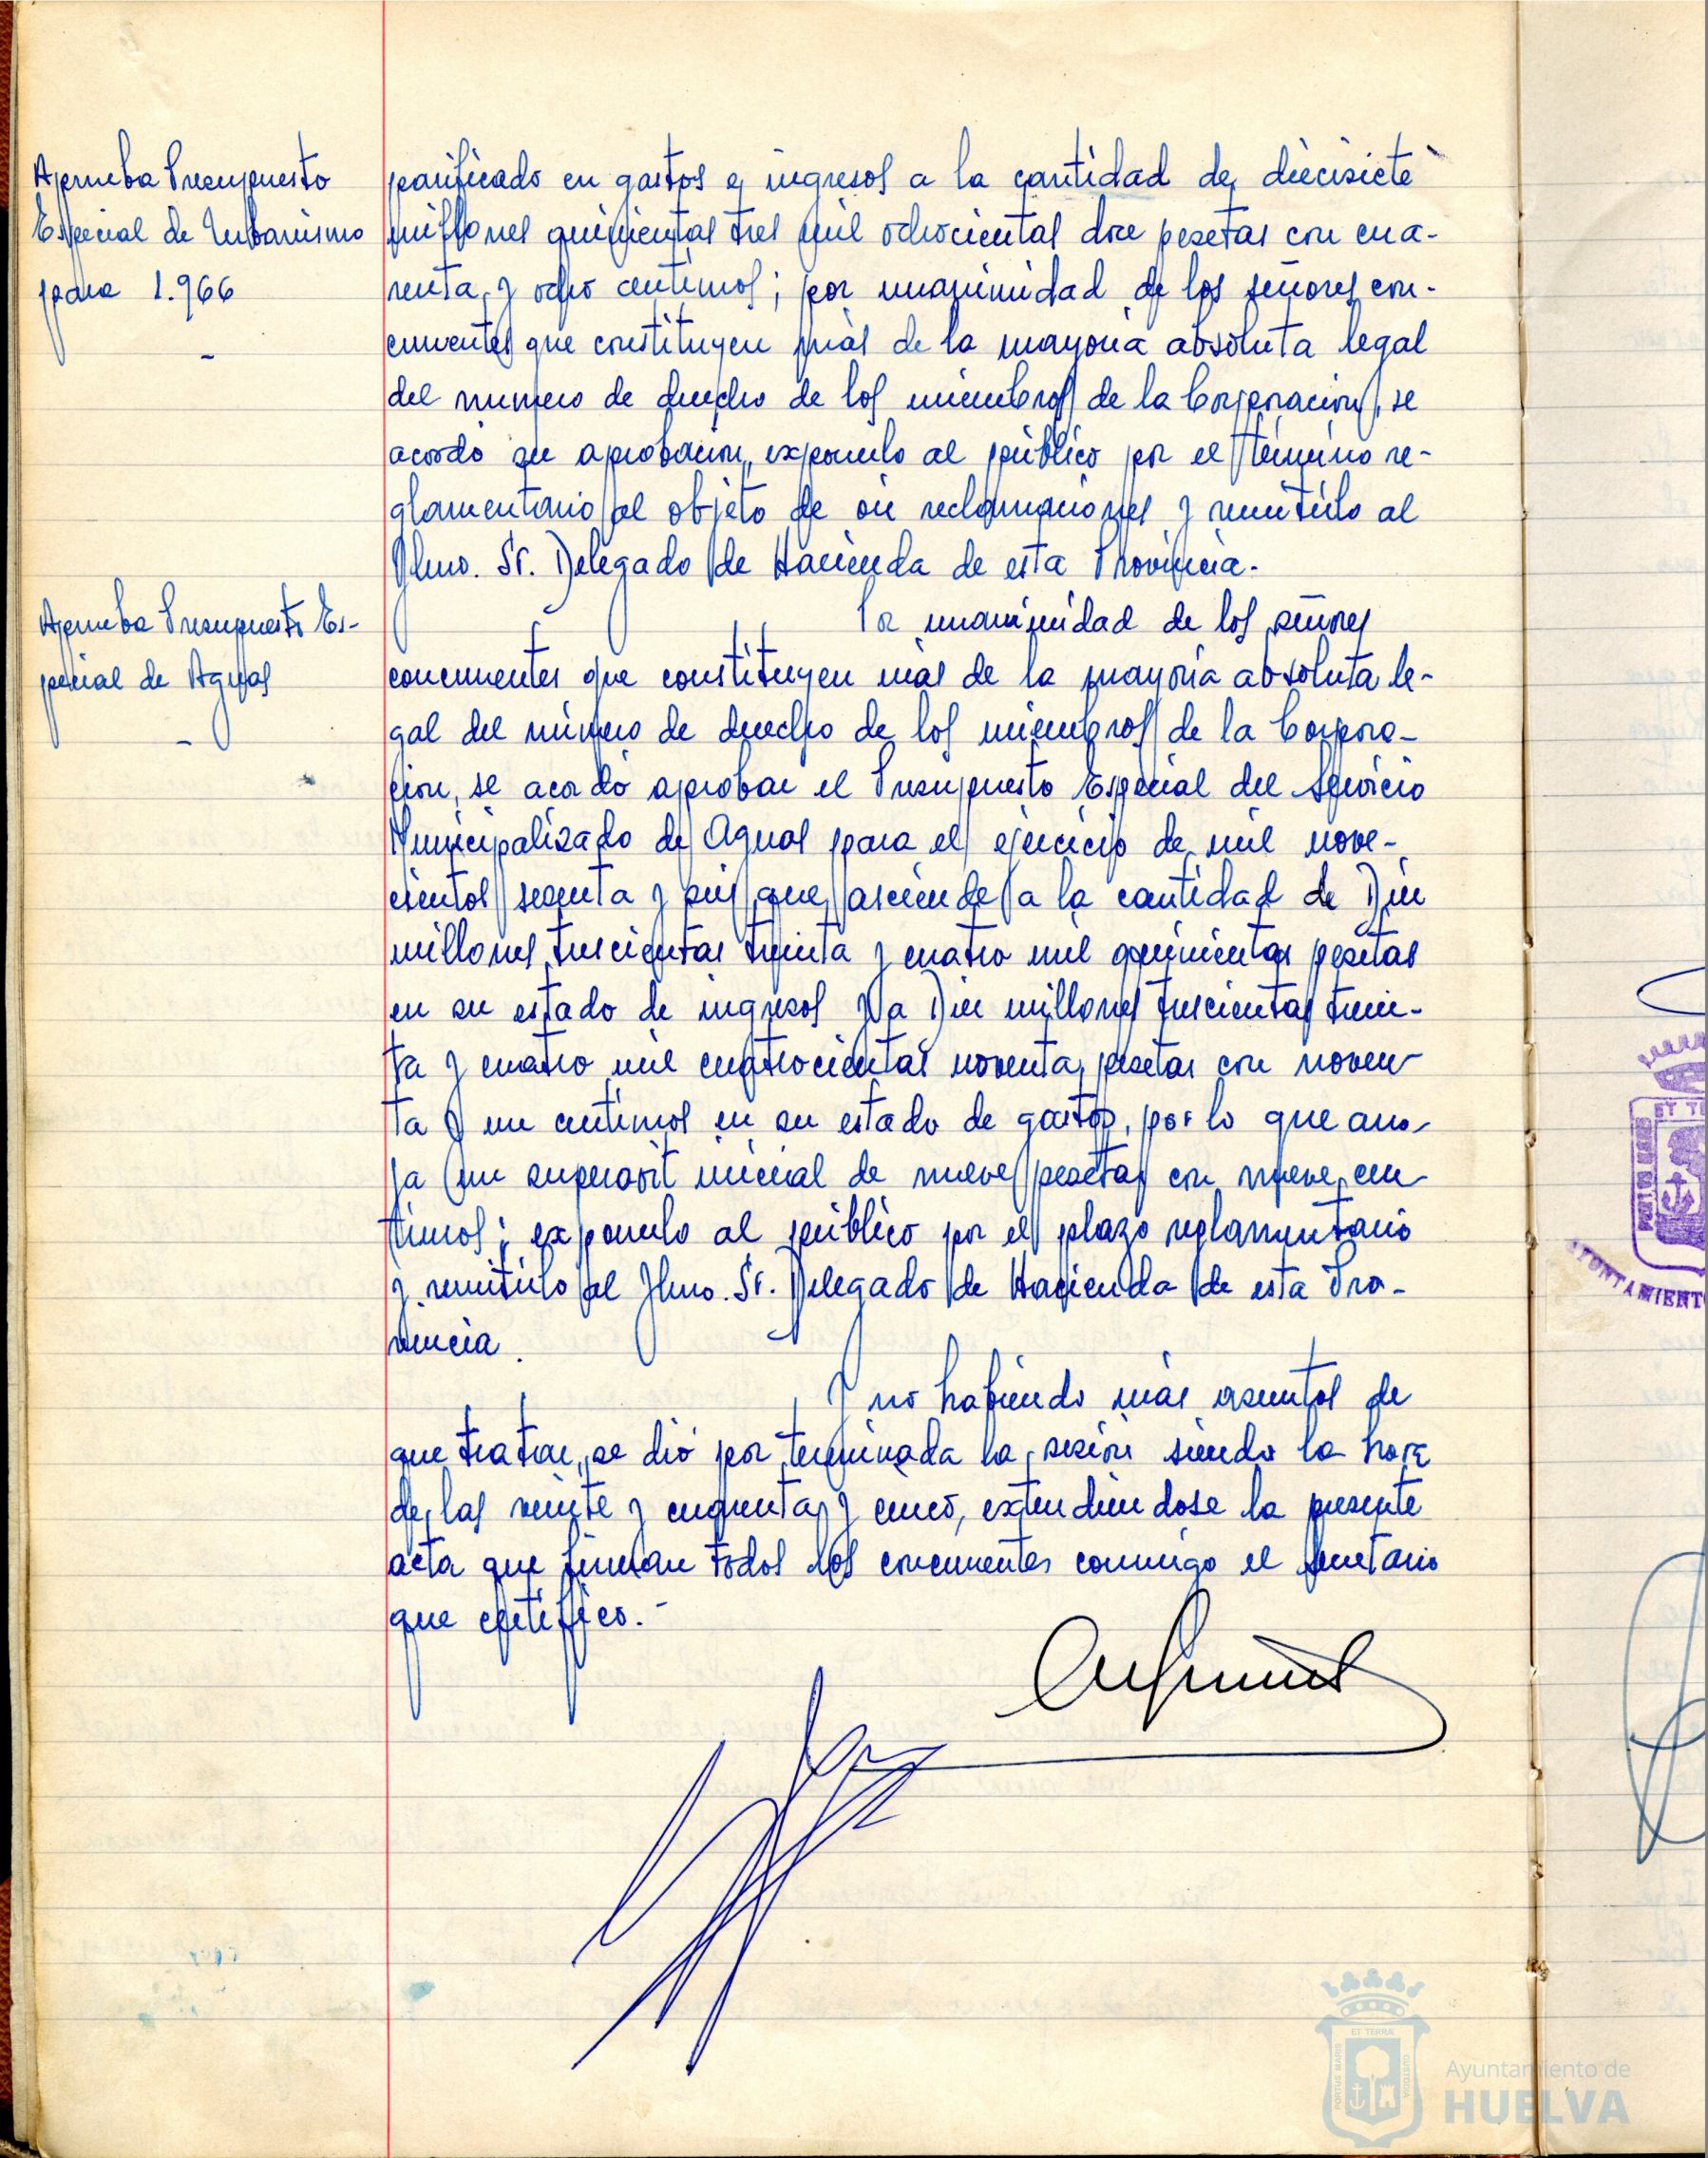 Aprueba Presupuesto
Especial de Urbanismo
para 1.966
-
parificado en gastos e ingresos a la cantidad de diecisiete
millones quinientas tres mil ochocientas doce pesetas con cua-
renta y ocho centimos; por unanimidad de los señores con-
currentes que constituyen más de la mayoría absoluta legal
del numero de derecho de los miembros de la Corporacion, se
acordó su aprobacion, exponerlo al público por el término re-
glamentario al objeto de oir reclamaciones y remitirlo al
Ylmo. Sr. Delegado de Hacienda de esta Provincia.-
Aprueba Presupuesto Es-
pecial de Aguas
-
Por unanimidad de los señores
concurrentes que constituyen más de la mayoría absoluta le-
gal del número de derecho de los miembros de la Corpora-
cion, se acordó aprobar el Presupuesto Especial del Servicio
Municipalizado de Aguas para el ejercicio de mil nove-
cientos sesenta y seis que asciende a la cantidad de Diez
millones trescientas treinta y cuatro mil quinientas pesetas
en su estado de ingresos y a Diez millones trescientas trein-
ta y cuatro mil cuatrocientas noventa pesetas con noven-
ta y un centimos en su estado de gastos, por lo que arro-
ja un superavit inicial de nueve pesetas con nueve cen-
timos; exponerlo al público por el plazo reglamentario
y remitirlo al Ylmo. Sr. Delegado de Hacienda de esta Pro-
vincia.
Y no habiendo más asuntos de
que tratar, se dió por terminada la sesión siendo la hora
de las veinte y cincuenta y cinco, extendiendose la presente
acta que firman todos los concurrentes conmigo el Secretario
que certifico.-
ET TERRÆ
PORTUS MARIS
CUSTODIA
AYUNTAMIENTO
Ayuntamiento de
HUELVA